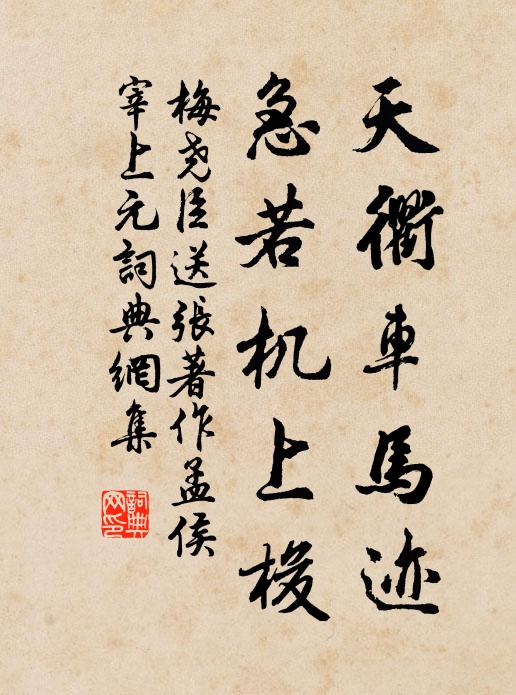 天衢車馬迹
急若机上梭
梅堯臣送張著作孟侯
宰上元詞典網集
詞典網印